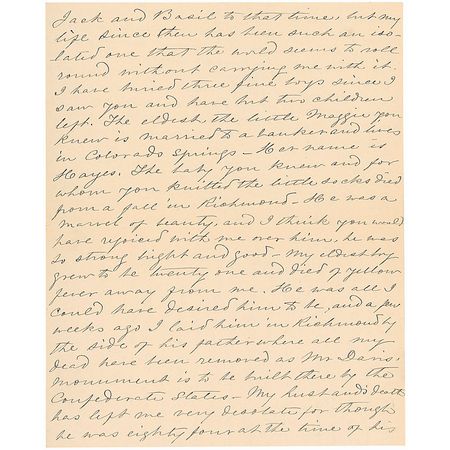 Jack and Basil to that time, but my
life since then has been such an iso-
lated one that the world seems to roll
round without carrying me with it.
I have buried three fine boys since I
saw you and have but two children
left. The eldest the little Maggie you
knew is married to a banker and lives
in Colorado Springs - Her name is
Hayes. The baby you knew and for
whom you knitted the little socks died
from a fall in Richmond. He was a
marvel of beauty, and I think you would
have rejoiced with me over him, he was
so strong bright and good - My eldest boy
grew to be twenty one and died of yellow
fever away from me. He was all I
could have desired him to be, and a few
weeks ago I laid him in Richmond by
the side of his father where all my
dead have been removed as Mr. Davis,
monument is to be built there by the
Confederate States - My husband's death
has left me very desolate for though
he was eighty four at the time of his